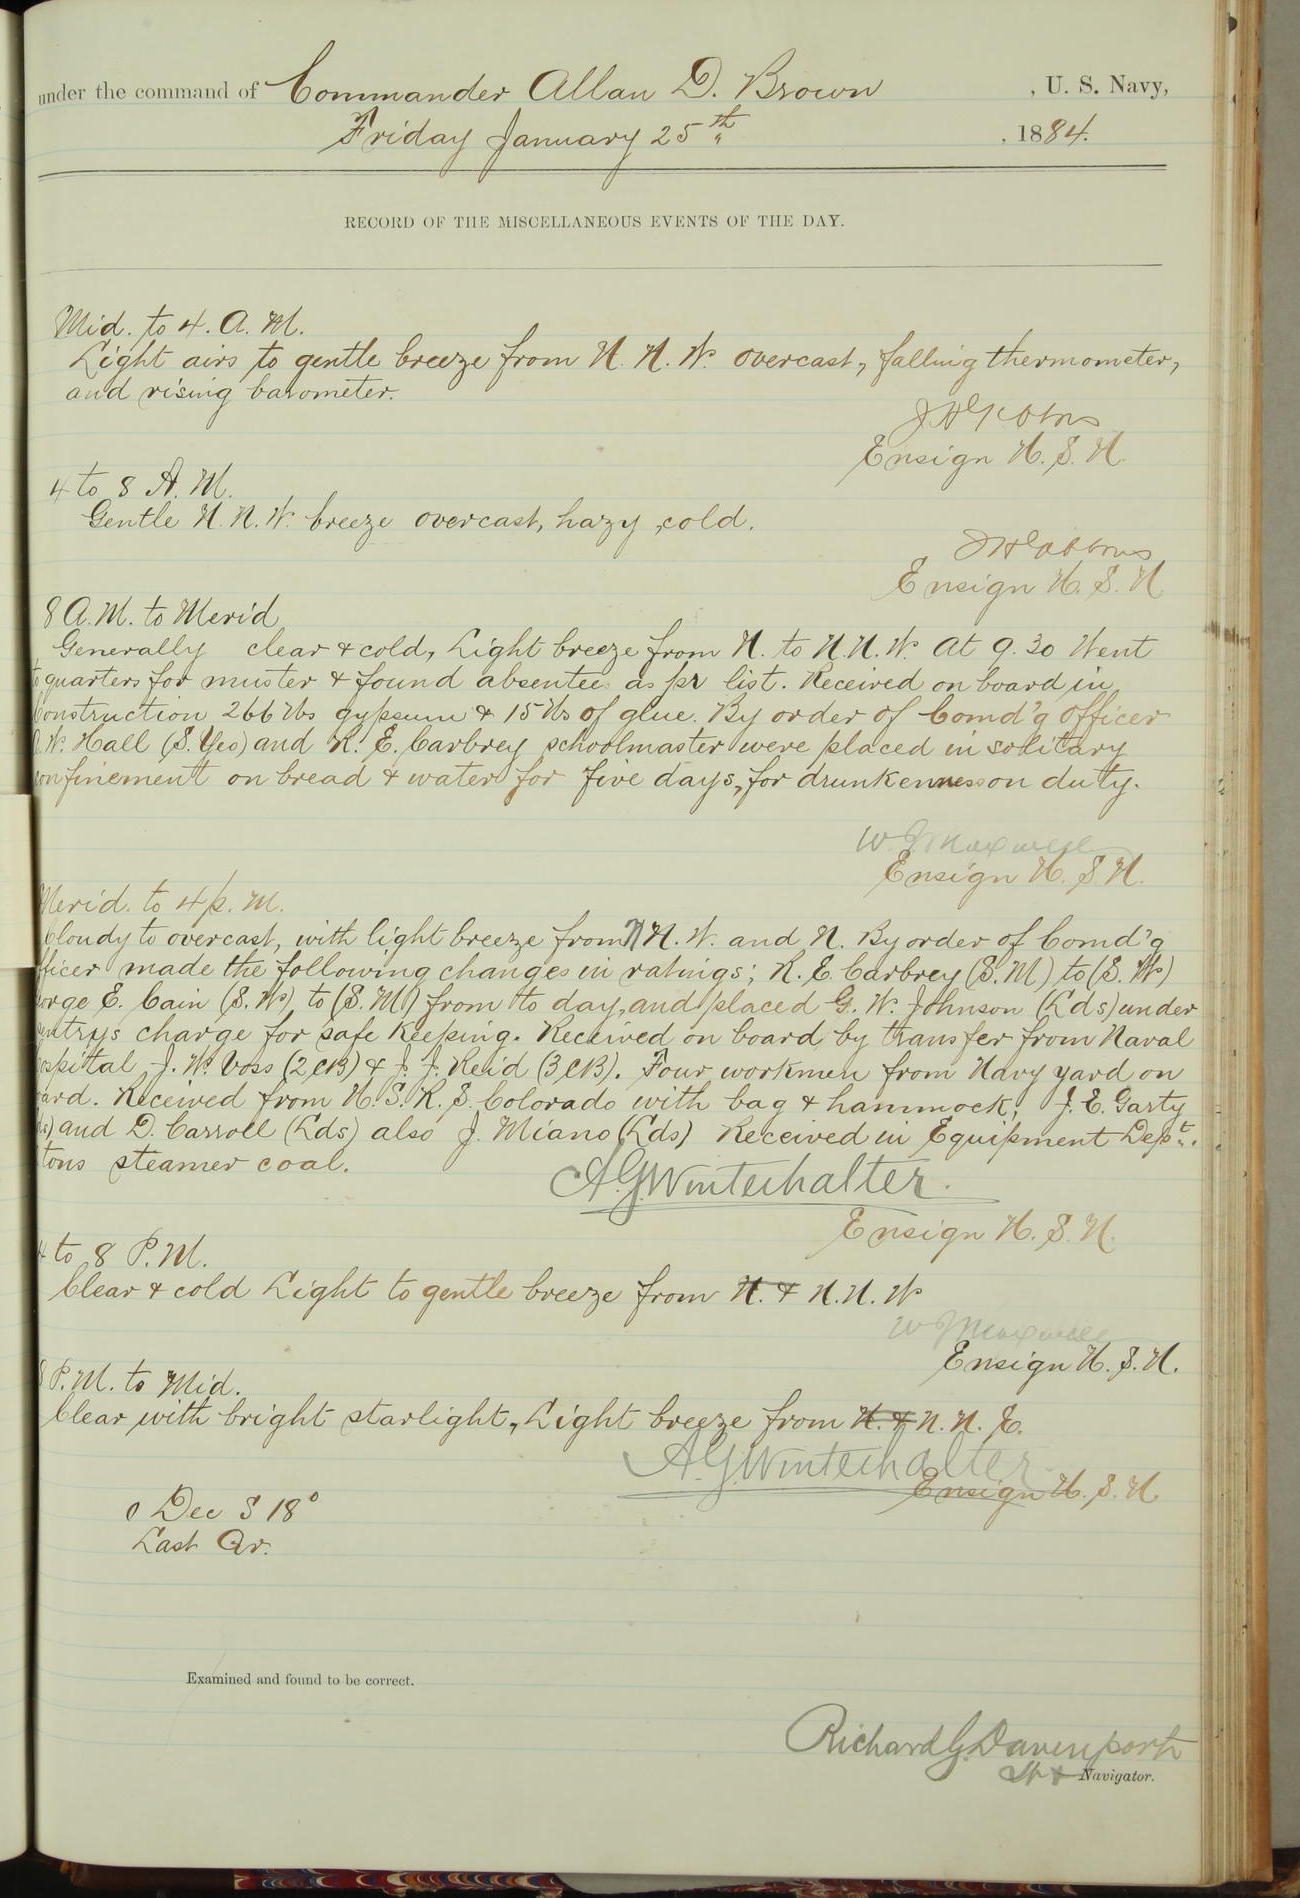 under the command of Commander Allan D. Brown , U. S. Navy,
Friday January 25th , 1884.
RECORD OF THE MISCELLANEOUS EVENTS OF THE DAY.
Mid. to 4. A. M.
Light airs to gentle breeze from N. N. W. overcast, falling thermometer,
and rising barometer.
Ensign U. S. N.
4 to 8 A. M.
Gentle N. N. W. breeze overcast, hazy, cold.
Ensign U. S. N
8 A. M. to Merid
Generally clear & cold, Light breeze from N. to N. N. W. At 9.30 Went
to quarters for muster & found absentees as pr list. Received on board in
Construction 266 lbs gypsum & 15 lbs of glue. By order of Comd'g Officer
W. Hall (S. Yeo) and R. E. Carbrey schoolmaster were placed in solitary
confinement on bread & water for five days, for drunkenness on duty.
W. J. Maxwell
Ensign U. S. N.
Merid. to 4 p. M.
Cloudy to overcast, with light breeze from N N. W. and N. By order of Comd'g
fficer made the following changes in ratings; R. E. Carbrey (S. M) to (S. W)
orge E. Cain (S. W) to (S. M) from to day, and placed G. W. Johnson (Lds) under
entrys charge for safe keeping. Received on board by transfer from Naval
ospital J. W. Voss (2 CB) & J. J. Reid (3 CB). Four workmen from Navy yard on
oard. Received from U. S. R. S. Colorado with bag & hammock; J. E. Garty
ds) and D. Carroll (Lds) also J. Miano (Lds) Received in Equipment Dept.
tons steamer coal.
A. G. Winterhalter.
Ensign U. S. N.
4 to 8 P. M.
Clear & cold Light to gentle breeze from N. & N. N. W
W J Maxwell
Ensign U. S. N.
8 P. M. to Mid.
Clear with bright starlight, Light breeze from N. & N. N. E.
A. G. Winterhalter
Ensign U. S. N
Dec S 18°
Last Qr.
Examined and found to be correct.
Richard G. Davenport
Lt & Navigator.